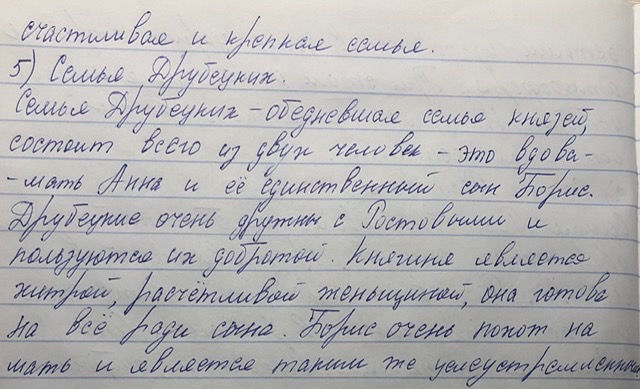 счастливая и крепкая семья.
5) Семья Друбецких.
Семья Друбецких - обедневшая семья князей,
состоит всего из двух человек - это вдова-
-мать Анна и её единственный сын Борис.
Друбецкие очень дружны с Ростовыми и
пользуются их добротой. Княгиня является
хитрой, расчётливой женьщиной, она готова
на всё ради сына. Борис очень похож на
мать и является таким же целеустремленным